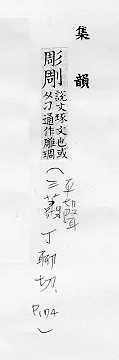 集韻
彫剛
說文琢文也或
从刀通作雕琱
(平聲
三蕭
丁聊切、
P.174)